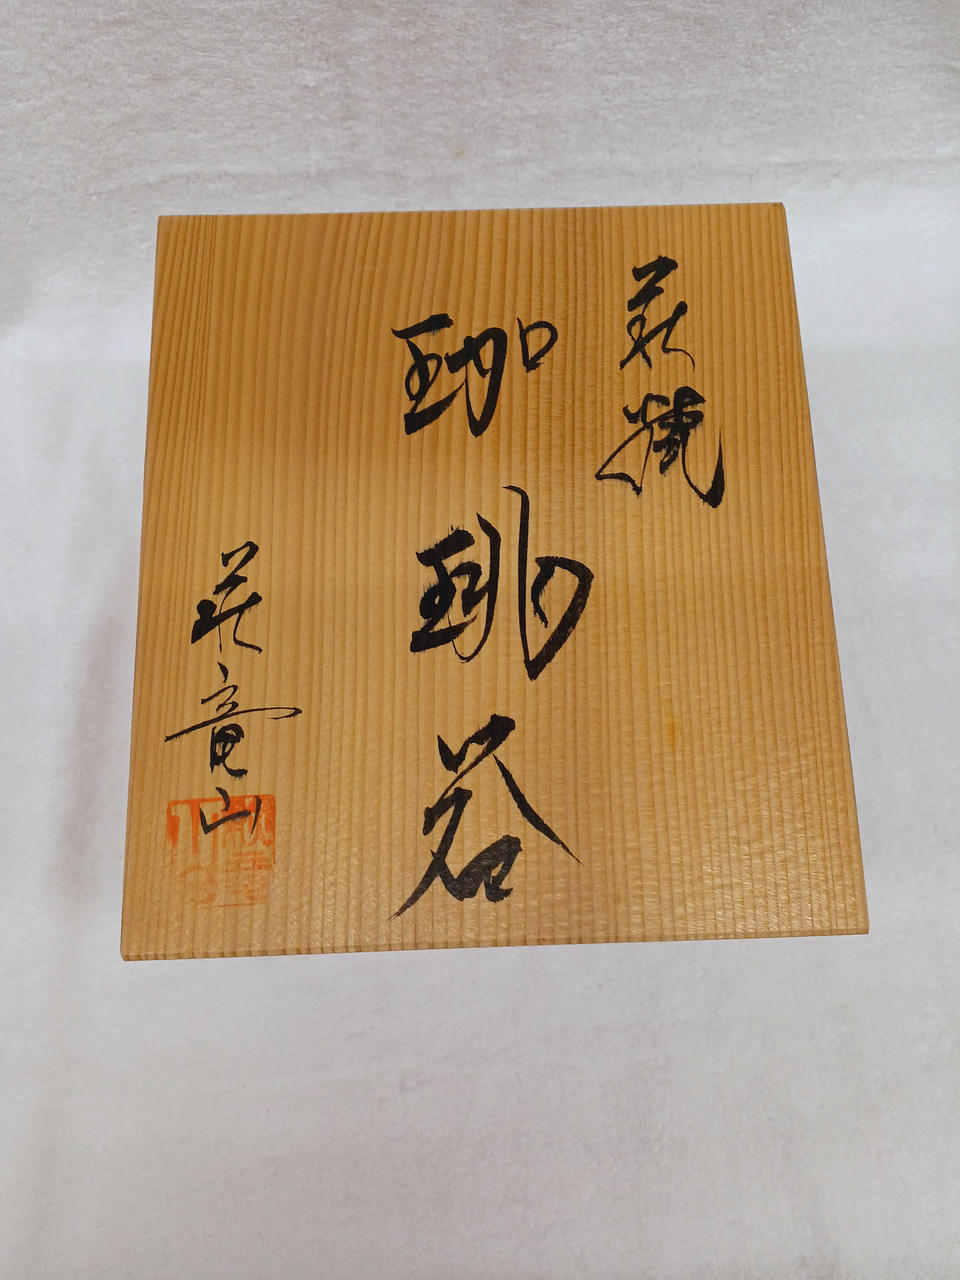 萩焼
珈琲碗
萩竜山